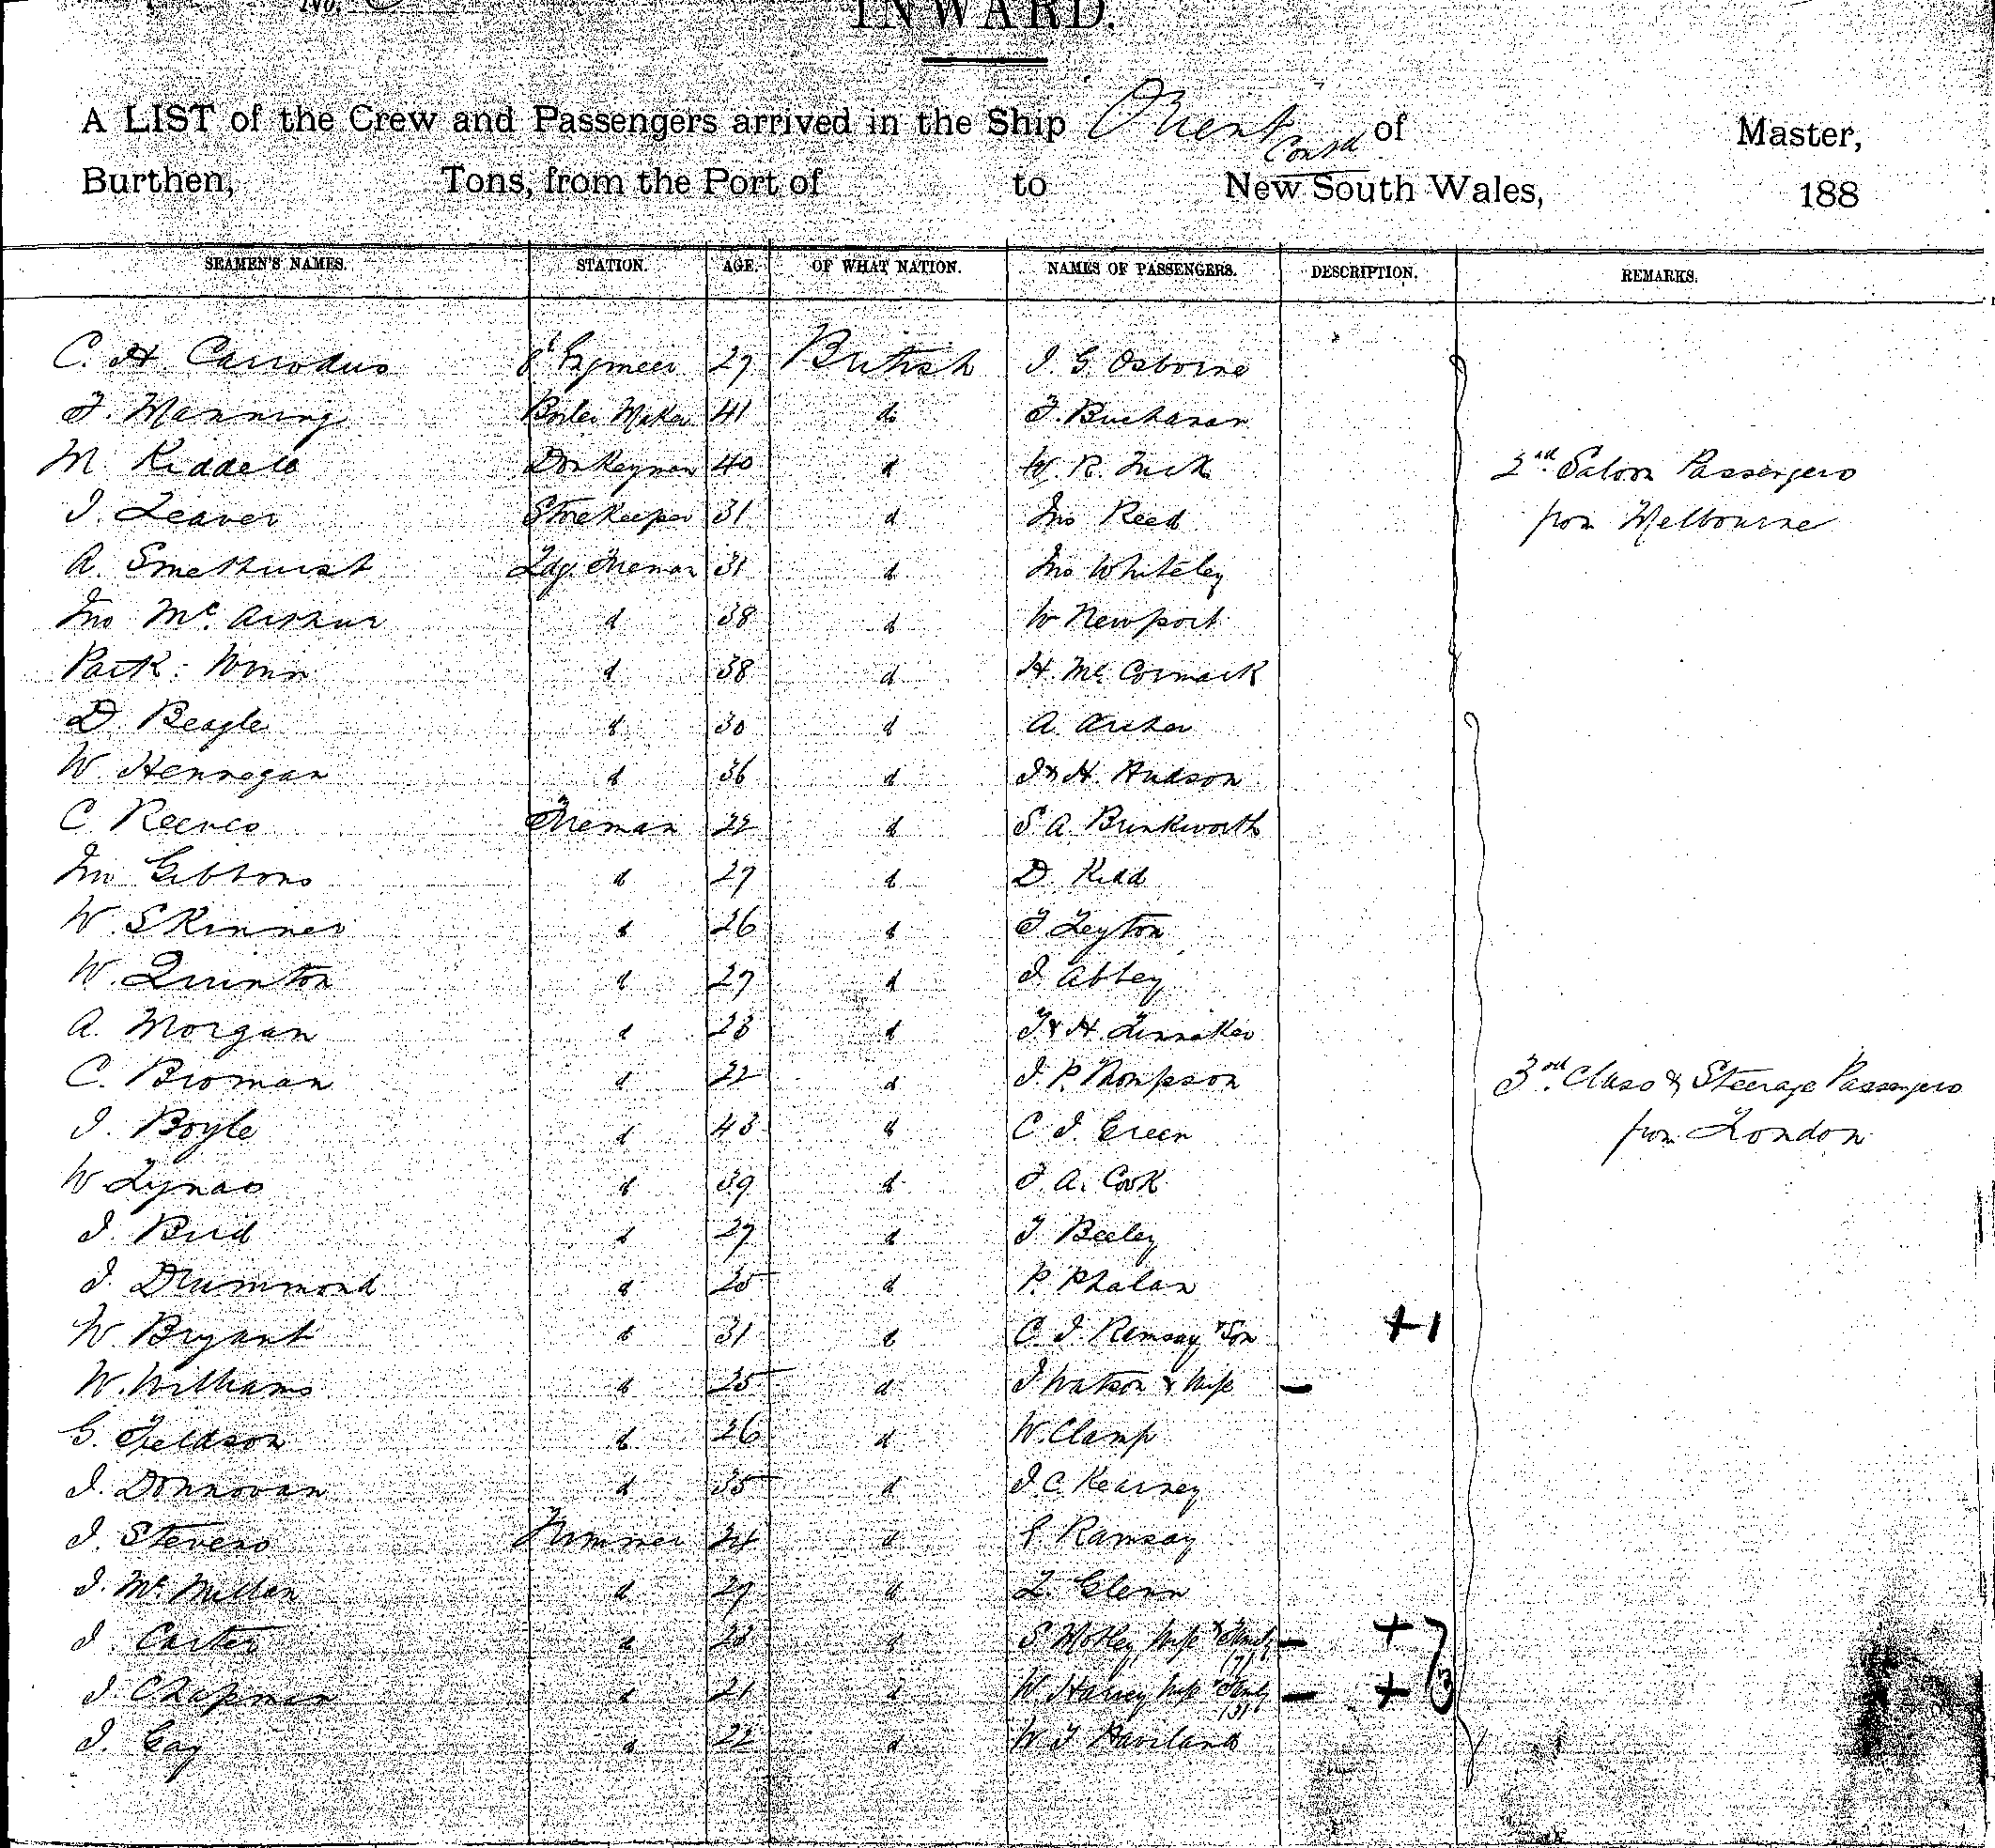 No.
INWARD.
A LIST of the Crew and Passengers arrived in the Ship Orient Contd of Master,
Burthen, Tons, from the Port of to New South Wales, 188
SEAMEN'S NAMES. STATION. AGE. OF WHAT NATION. NAMES OF PASSENGERS. DESCRIPTION. REMARKS.
C. H. Carrodus 8th Engineer 27 British J. G. Osborne
F. Manning Boiler Maker 41 do F. Buchanan
M. Riddell Donkeyman 40 d W. R. 2nd Saloon Passengers
J. Leaver Storekeeper 31 d Jno Reed from Melbourne
A. Smethurst Ldg. Fireman 31 d Jno Whiteley
Jno McArthur d 38 d W Newport
Patk: Winn d 38 d H. McCormack
D. Beagle d 30 d A. Archer
W. Hennegan d 36 d J & H. Hudson
C. Reeves Fireman 22 d S. A. Brinkworth
Jno Gibbons d 27 d D. Kidd
W. Skinner d 26 d F. Leyton
W. Quinton d 27 d J. Abbey
A. Morgan d 23 d F & H. Linnaker
C. Broman d 22 d J. P. Thompson 3rd Class & Steerage Passengers
J. Boyle d 43 d C. J. Green from London
W Lynas d 39 d F. A. Cook
J. Bird d 27 d F. Beeley
J. Drummond d 25 d P. Phalan
W. Bryant d 31 d C. J. Ramsay & Son +1
W. Williams d 25 d J Watson & Wife –
G. Feldson d 26 d W. Clamp
J. Donnovan d 35 d J. C. Kearney
J. Stevens Trimmer 24 d Ramsay
J. McMillan d 29 d L. Glenn
J. Carter d 23 d S. Motley Wife & Family – +
J. Chapman d 21 d W. Harvey Wife & Family (3) – +
J. Gay d 22 d W. J. Haviland